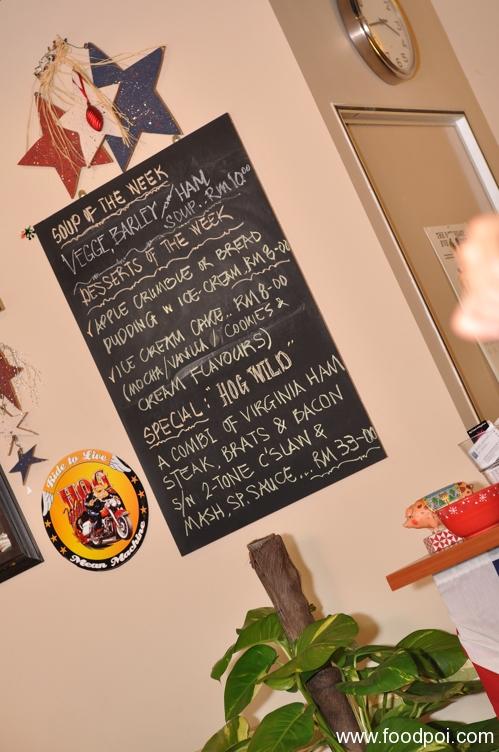 SOUP OF THE WEEK
VEGGE, BARLEY HAM
SOUP.. RM10.00
DESSERTS OF THE WEEK
✓APPLE CRUMBLE OR BREAD
PUDDING W ICE-CREAM. RM8-00
✓ICE CREAM CAKE.. RM8-00
(MOCHA/VANILLA/COOKIES &
CREAM FLAVOURS)
SPECIAL: "HOG WILD"
A COMBI. OF VIRGINIA HAM
STEAK, BRATS & BACON
S/W 2-TONE C'SLAW &
MASH, SP. SAUCE... RM 33-00
Ride to Live
HOG
Mean Machine
www.foodpoi.com